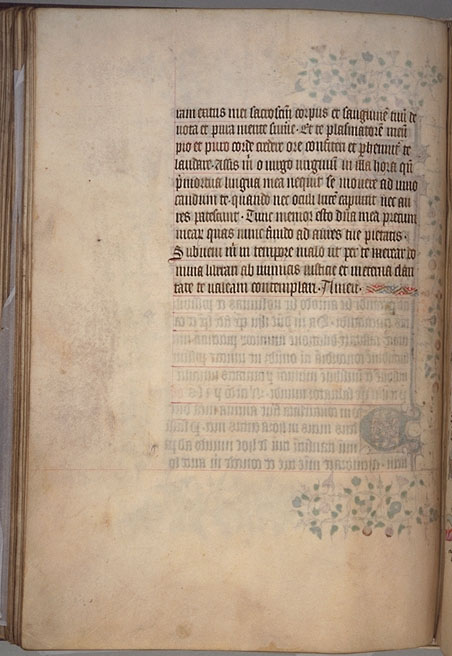 tam exitus mei sacrosctm corpus et sanguinē tuū de
uota et pura mente sumē. Et te plasmatorē meū
pio et puro corde credere ore confiteri et phennit te
laudare. Assis m̄ o uirgo uirginū in illa hora qn̄
pmortua lingua mea nequit se mouere ad inuo
candum te. quando nec oculi lucē capiunt nec au
res patesciunt. Tunc memor esto dn̄a mea precum
mearū quas nunc fundo ad aures tue pietatis.
Subueni m̄ in tempore malo ut per te merear do
mina liberari ab inimicis iusticie et in eterna clari
tate te ualeam contemplari. Amen.